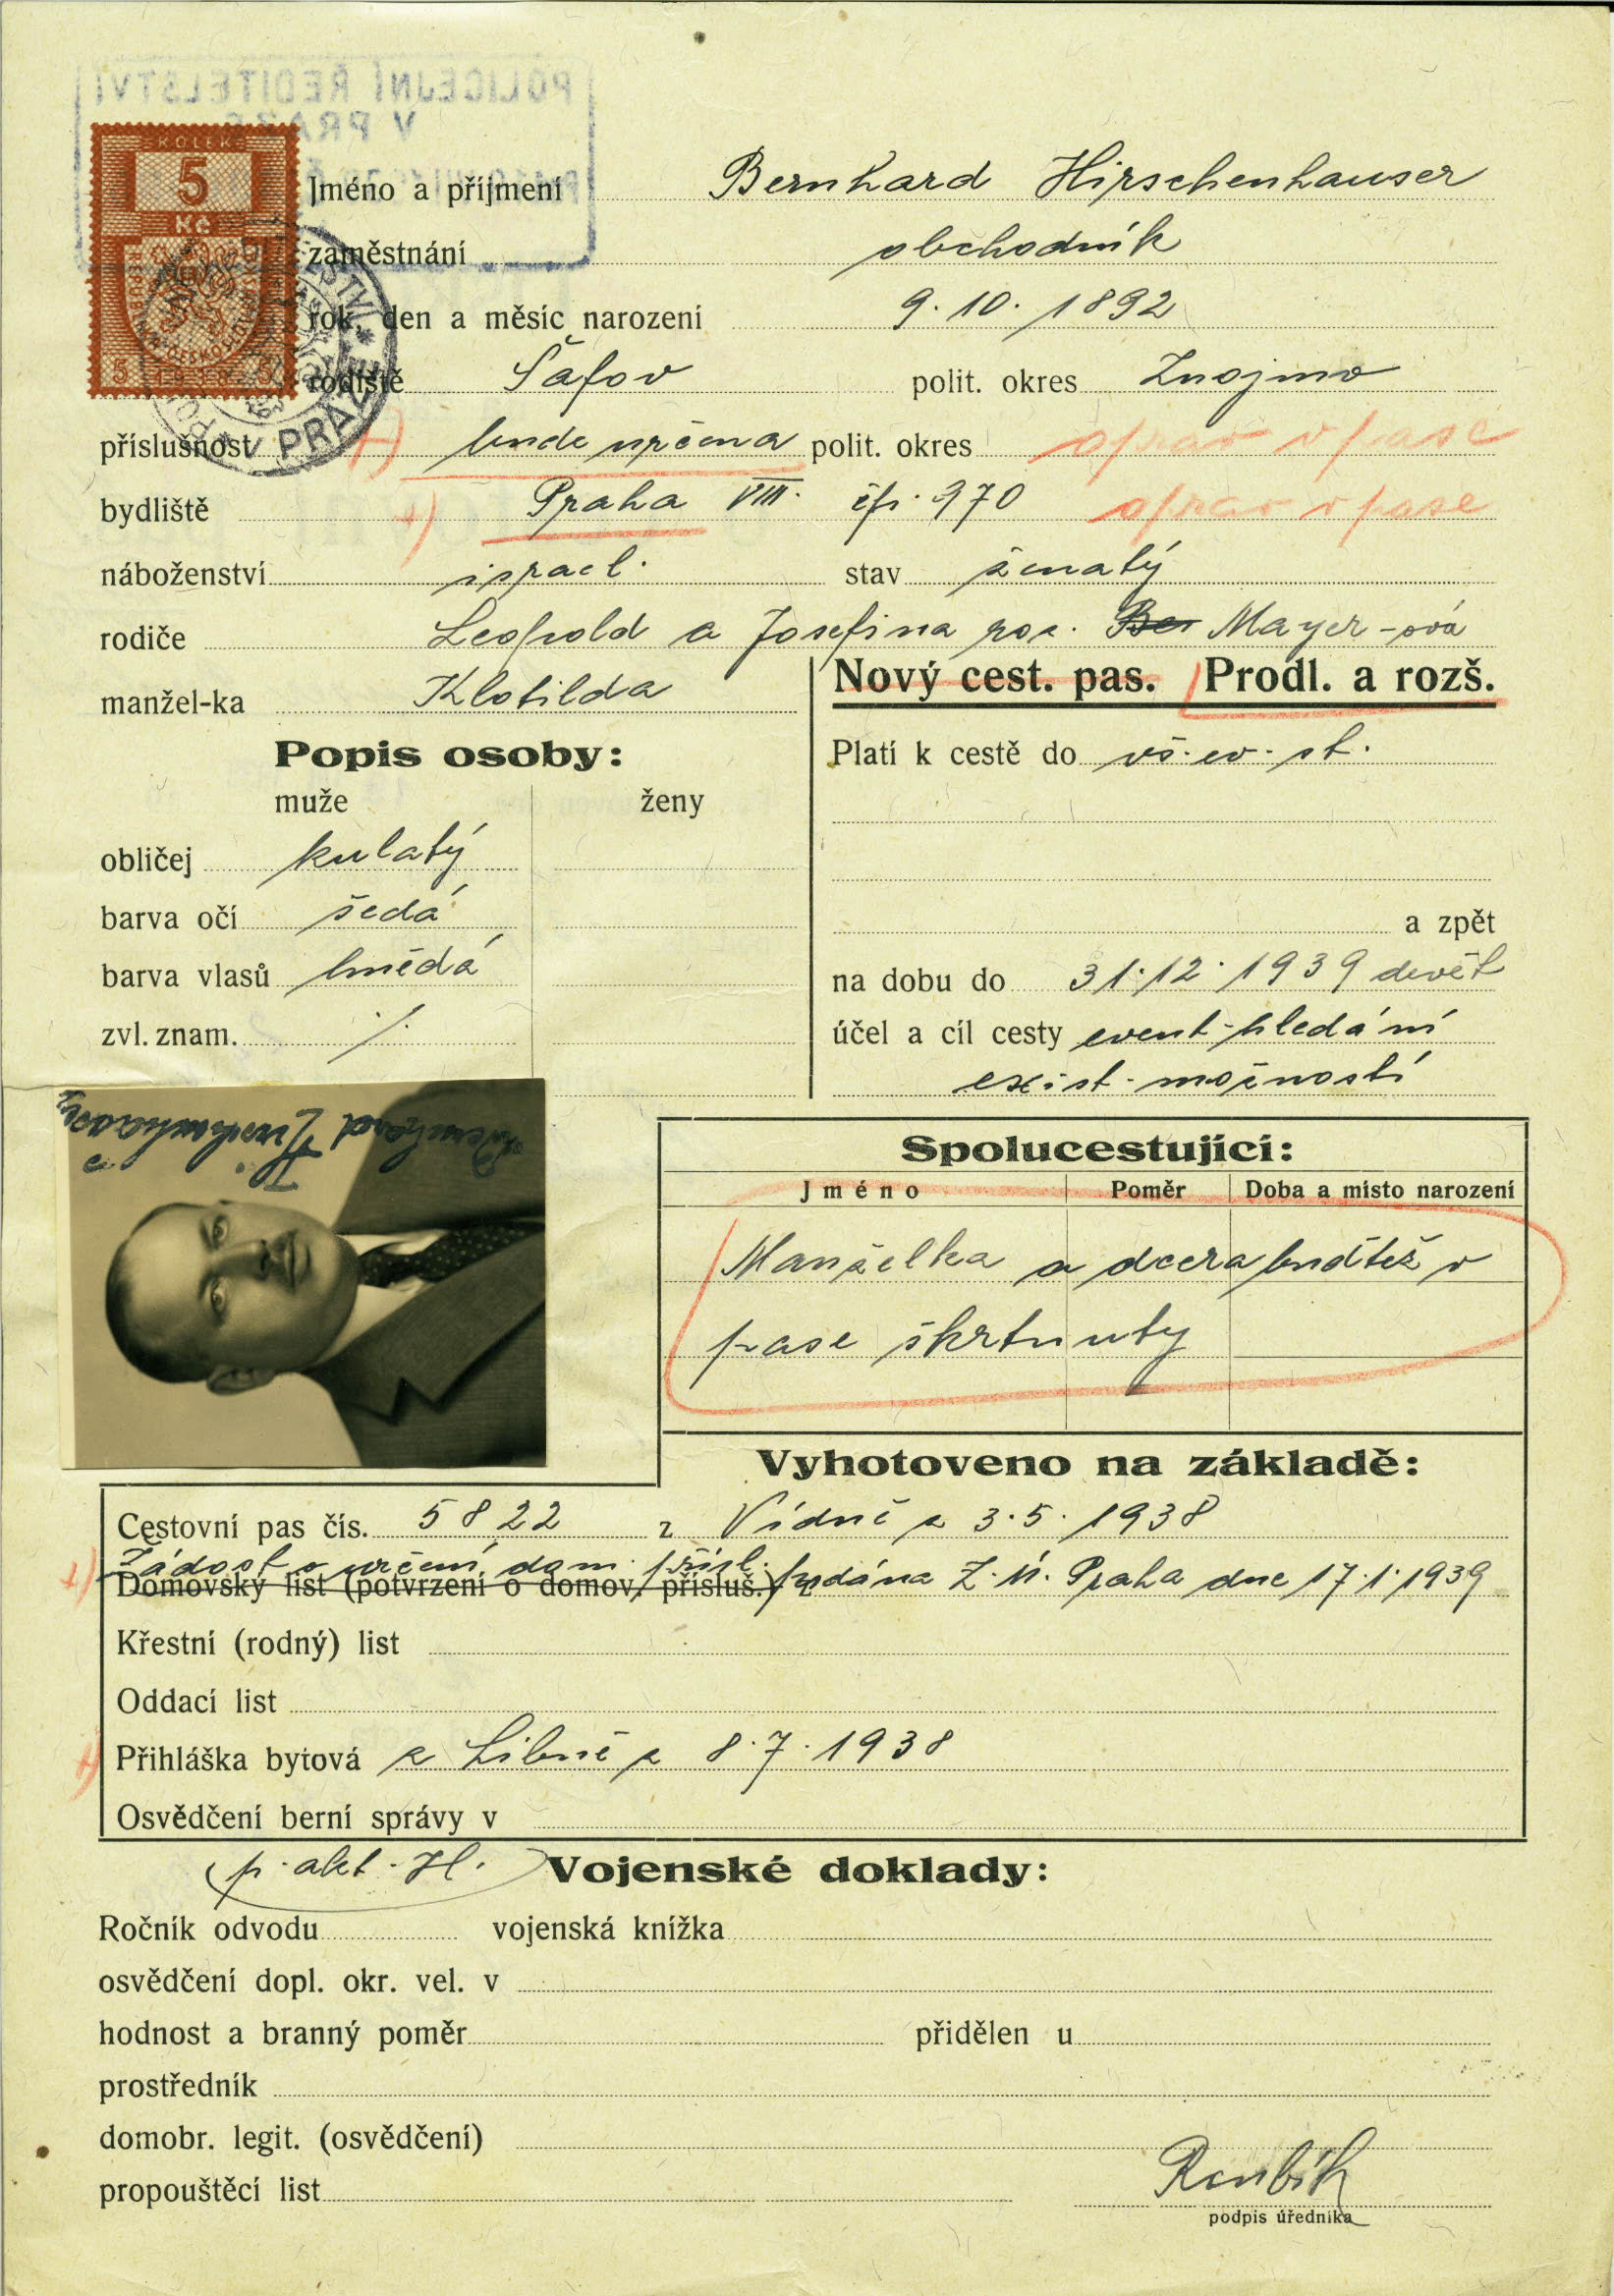 POLICEJNÍ ŘEDITELSTVÍ
V PRAZE
KOLEK
5
Kč
5 1938 5
V PRAZE
Jméno a příjmení Bernhard Hirschenhauser
zaměstnání obchodník
rok, den a měsíc narození 9. 10. 1892
rodiště Šafov polit. okres Znojmo
příslušnost +) bude určena polit. okres oprav v pase
bydliště +) Praha VIII. čp. 970 oprav v pase
náboženství israel. stav ženatý
rodiče Leopold a Josefina roz. Ber Mayer-ová
manžel-ka Klotilda
Nový cest. pas. Prodl. a rozš.
Popis osoby:
muže ženy
obličej kulatý
barva očí šedá
barva vlasů hnědá
zvl. znam. ·/·
Platí k cestě do vš. ev. st.
a zpět
na dobu do 31. 12. 1939 devět
účel a cíl cesty event. hledání
exist. možností
Bernhard Hirschenhauser
Spolucestující:
Jméno Poměr Doba a místo narození
Manželka a dcera buďtež v
pase škrtnuty
Vyhotoveno na základě:
Cestovní pas čís. 5822 z Vídně z 3. 5. 1938
+) Žádost o určení dom. přísl. podána Z. Ú. Praha dne 17. 1. 1939
Domovský list (potvrzení o domov. přísluš.) z
Křestní (rodný) list
Oddací list
+) Přihláška bytová z Libně z 8. 7. 1938
Osvědčení berní správy v
p. akt. H.
Vojenské doklady:
Ročník odvodu vojenská knížka
osvědčení dopl. okr. vel. v
hodnost a branný poměr přidělen u
prostředník
domobr. legit. (osvědčení)
propouštěcí list
podpis úředníka